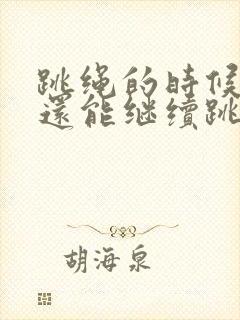 跳绳的時候
還能继續跳
胡海泉